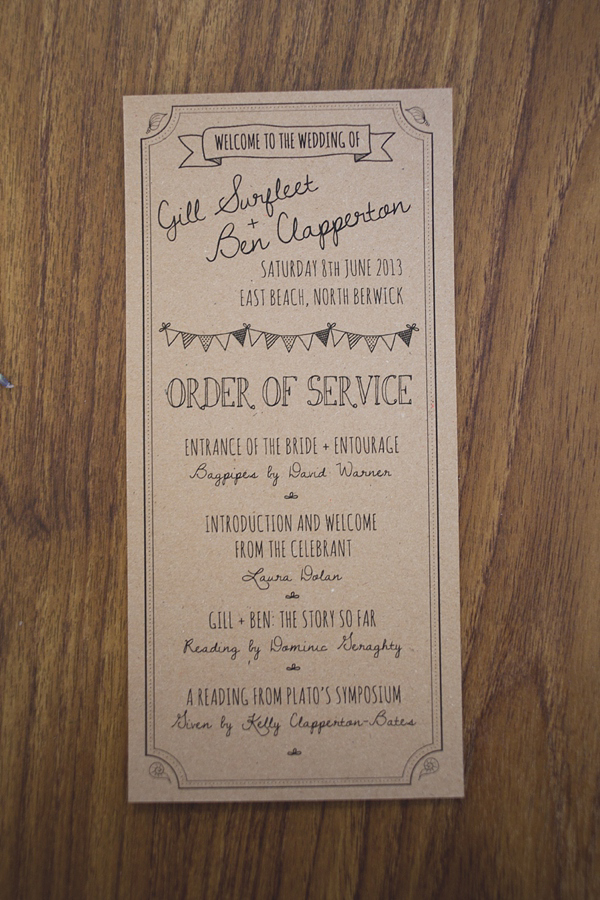 WELCOME TO THE WEDDING OF
Gill Surfleet
+
Ben Clapperton
SATURDAY 8TH JUNE 2013
EAST BEACH, NORTH BERWICK
ORDER OF SERVICE
ENTRANCE OF THE BRIDE + ENTOURAGE
Bagpipes by David Warner
INTRODUCTION AND WELCOME
FROM THE CELEBRANT
Laura Dolan
GILL + BEN: THE STORY SO FAR
Reading by Dominic Geraghty
A READING FROM PLATO'S SYMPOSIUM
Given by Kelly Clapperton-Bates